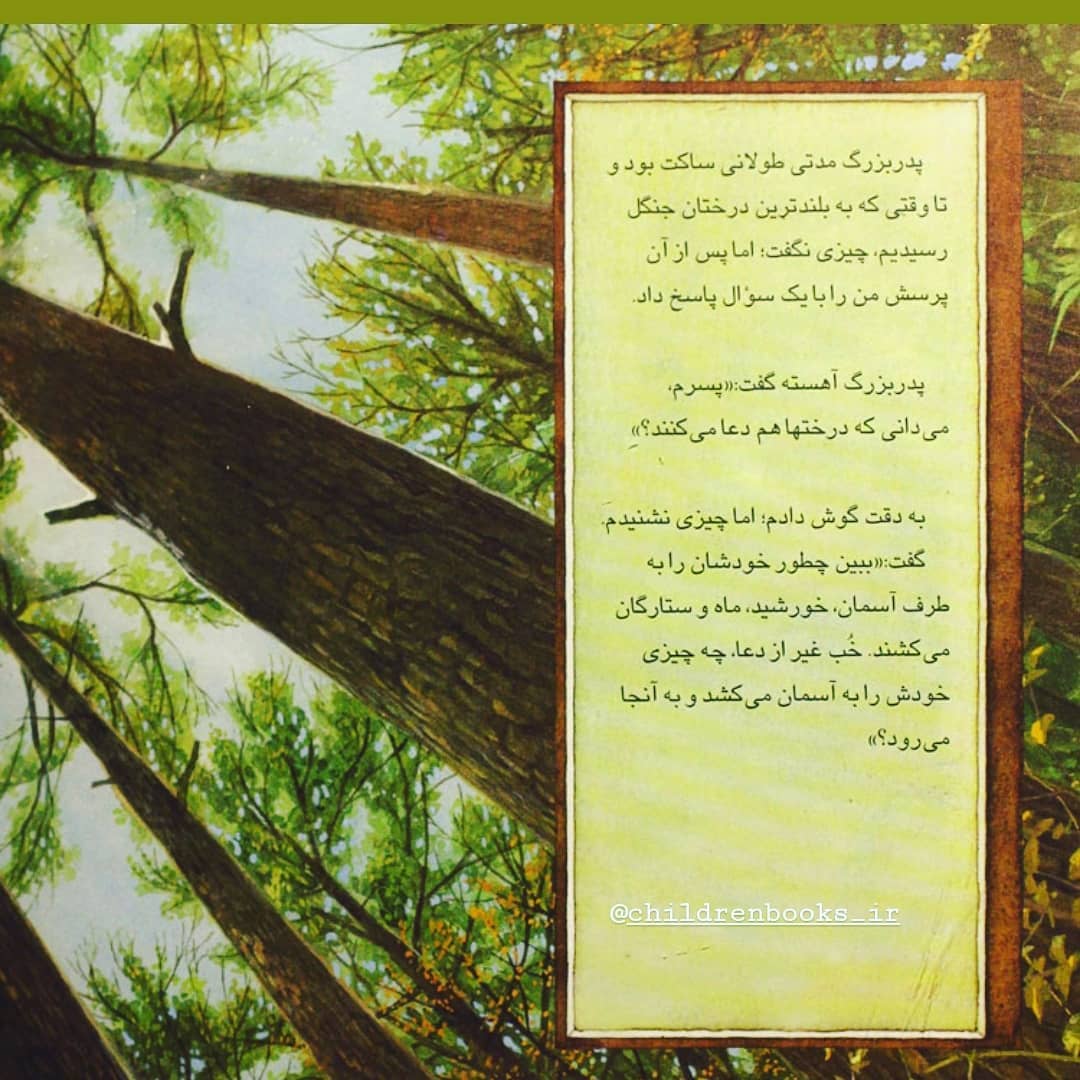 پدربزرگ مدتی طولانی ساکت بود و
تا وقتی که به بلندترین درختان جنگل
رسیدیم، چیزی نگفت؛ اما پس از آن
پرسش من را با یک سؤال پاسخ داد.
پدربزرگ آهسته گفت:«پسرم،
می‌دانی که درختها هم دعا می‌کنند؟»
به دقت گوش دادم؛ اما چیزی نشنیدم.
گفت:«ببین چطور خودشان را به
طرف آسمان، خورشید، ماه و ستارگان
می‌کشند. خُب غیر از دعا، چه چیزی
خودش را به آسمان می‌کشد و به آنجا
می‌رود؟»
@childrenbooks_ir